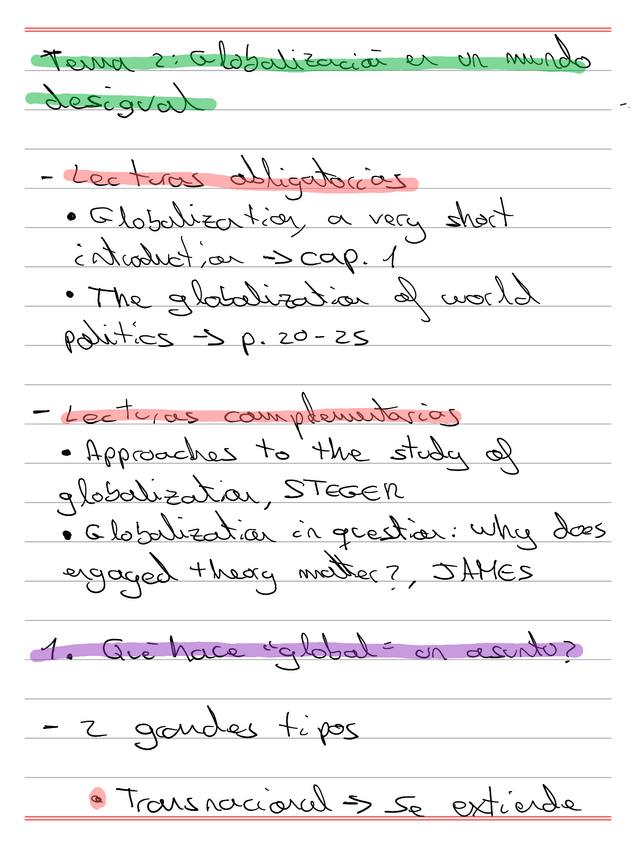 Tema 2: Globalización en un mundo
desigual
- Lecturas obligatorias
• Globalization, a very short
introduction -> cap. 1
• The globalization of world
politics -> p. 20-25
- Lecturas complementarias
• Approaches to the study of
globalization, STEGER
• Globalization in question: why does
engaged theory matter?, JAMES
1. Qué hace "global" un asunto?
- 2 grandes tipos
• Transnacional -> Se extiende